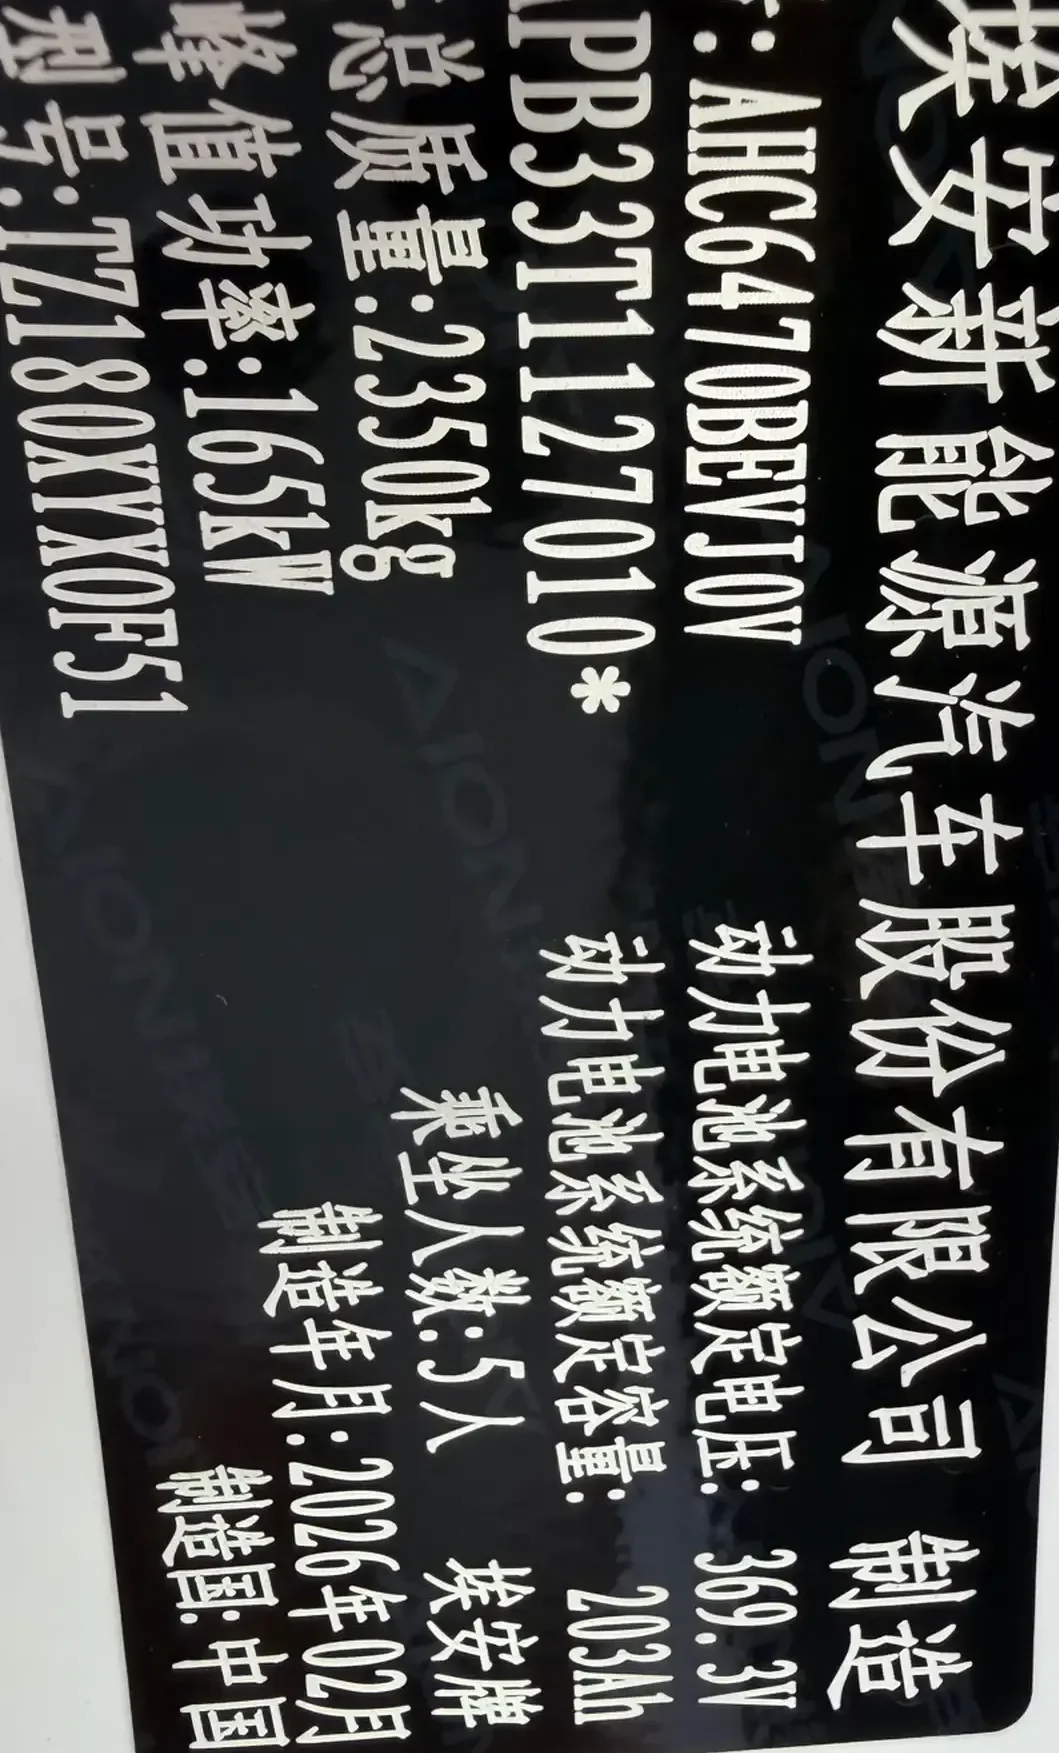 埃安新能源汽车股份有限公司 制造
: AHC6470BEVJ0V 动力电池系统额定电压: 369.3V
PB33T1127010* 动力电池系统额定容量: 203Ah
总质量:2350kg 乘坐人数:5人 埃安牌
峰值功率:165kW 制造年月:2026年02月
型号:TZ180XYX0F51 制造国:中国
AION
AION
AION